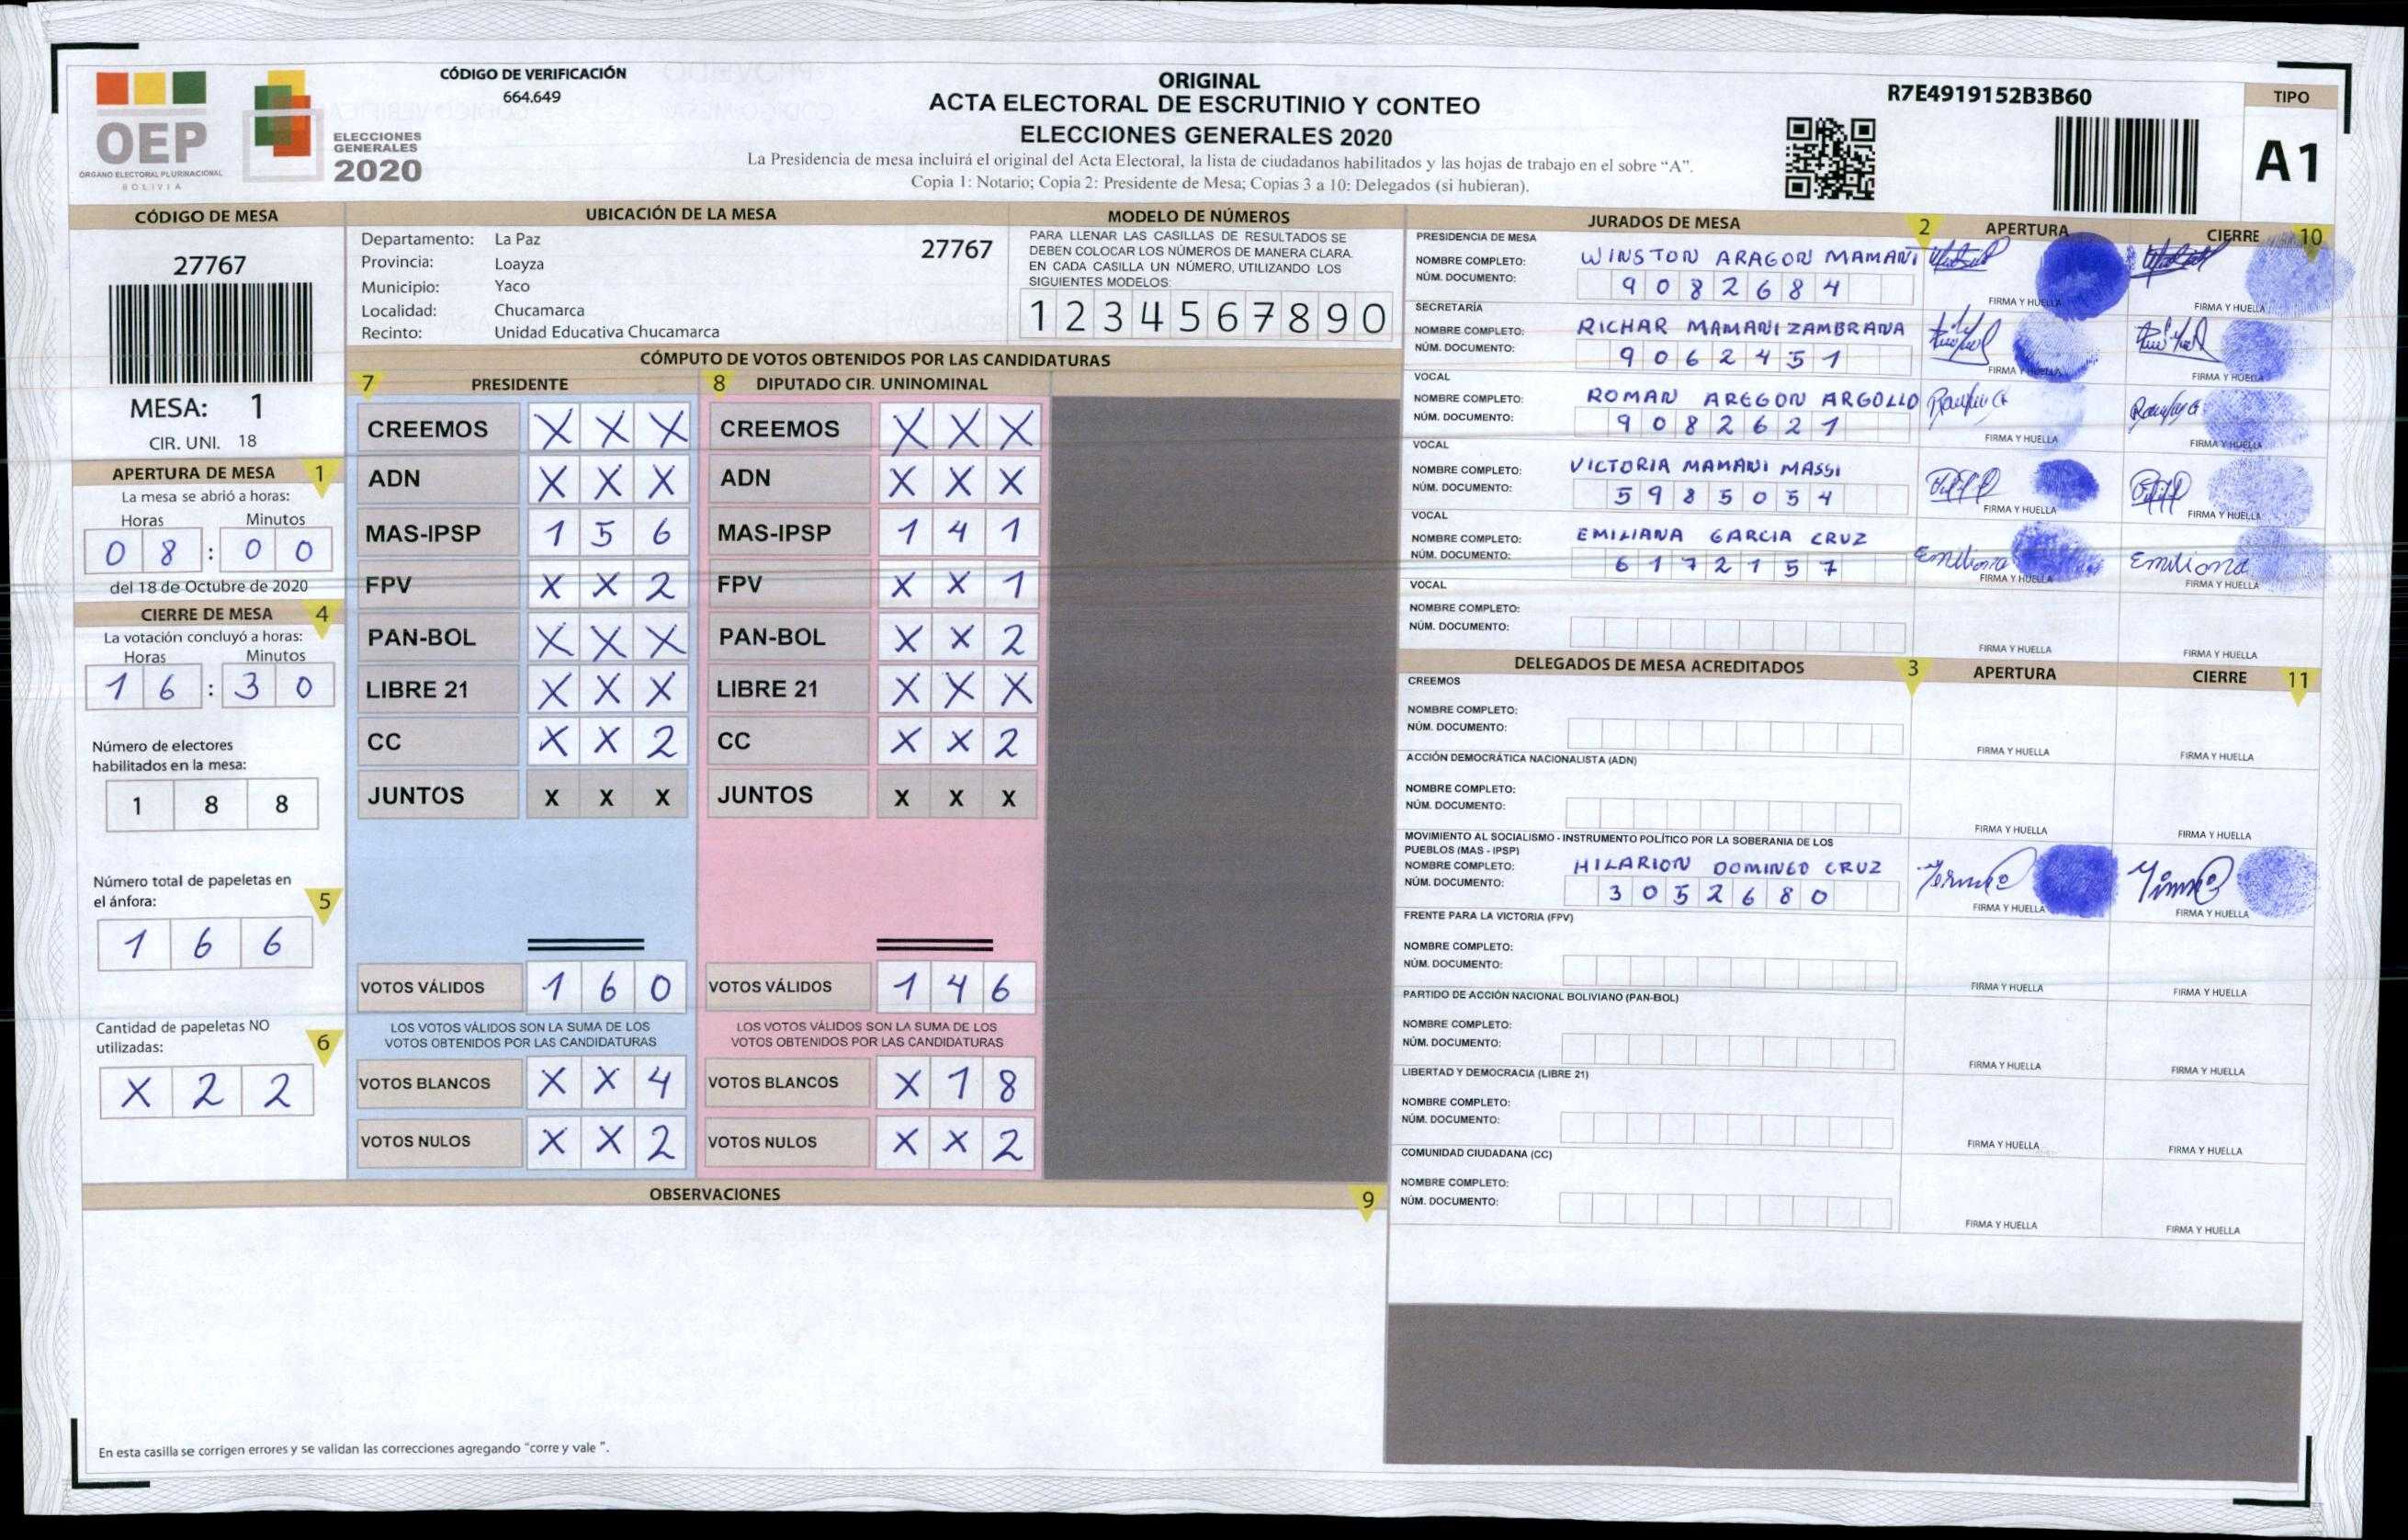 OEP
ÓRGANO ELECTORAL PLURINACIONAL
BOLIVIA
ELECCIONES
GENERALES
2020
CÓDIGO DE VERIFICACIÓN
664.649
ORIGINAL
ACTA ELECTORAL DE ESCRUTINIO Y CONTEO
ELECCIONES GENERALES 2020
La Presidencia de mesa incluirá el original del Acta Electoral, la lista de ciudadanos habilitados y las hojas de trabajo en el sobre “A”.
Copia 1: Notario; Copia 2: Presidente de Mesa; Copias 3 a 10: Delegados (si hubieran).
R7E4919152B3B60
TIPO
A1
CÓDIGO DE MESA
27767
MESA: 1
CIR. UNI. 18
APERTURA DE MESA 1
La mesa se abrió a horas:
Horas Minutos
0 8 : 0 0
del 18 de Octubre de 2020
CIERRE DE MESA 4
La votación concluyó a horas:
Horas Minutos
1 6 : 3 0
Número de electores
habilitados en la mesa:
1 8 8
Número total de papeletas en
el ánfora: 5
1 6 6
Cantidad de papeletas NO
utilizadas: 6
X 2 2
UBICACIÓN DE LA MESA
Departamento: La Paz 27767
Provincia: Loayza
Municipio: Yaco
Localidad: Chucamarca
Recinto: Unidad Educativa Chucamarca
MODELO DE NÚMEROS
PARA LLENAR LAS CASILLAS DE RESULTADOS SE
DEBEN COLOCAR LOS NÚMEROS DE MANERA CLARA.
EN CADA CASILLA UN NÚMERO, UTILIZANDO LOS
SIGUIENTES MODELOS:
1 2 3 4 5 6 7 8 9 0
CÓMPUTO DE VOTOS OBTENIDOS POR LAS CANDIDATURAS
7 PRESIDENTE 8 DIPUTADO CIR. UNINOMINAL
CREEMOS X X X CREEMOS X X X
ADN X X X ADN X X X
MAS-IPSP 1 5 6 MAS-IPSP 1 4 1
FPV X X 2 FPV X X 1
PAN-BOL X X X PAN-BOL X X 2
LIBRE 21 X X X LIBRE 21 X X X
CC X X 2 CC X X 2
JUNTOS X X X JUNTOS X X X
VOTOS VÁLIDOS 1 6 0 VOTOS VÁLIDOS 1 4 6
LOS VOTOS VÁLIDOS SON LA SUMA DE LOS LOS VOTOS VÁLIDOS SON LA SUMA DE LOS
VOTOS OBTENIDOS POR LAS CANDIDATURAS VOTOS OBTENIDOS POR LAS CANDIDATURAS
VOTOS BLANCOS X X 4 VOTOS BLANCOS X 1 8
VOTOS NULOS X X 2 VOTOS NULOS X X 2
OBSERVACIONES 9
En esta casilla se corrigen errores y se validan las correcciones agregando “corre y vale ”.
JURADOS DE MESA 2 APERTURA CIERRE 10
PRESIDENCIA DE MESA
NOMBRE COMPLETO: WINSTON ARAGON MAMANI
NÚM. DOCUMENTO: 9 0 8 2 6 8 4
FIRMA Y HUELLA FIRMA Y HUELLA
SECRETARÍA
NOMBRE COMPLETO: RICHAR MAMANI ZAMBRANA
NÚM. DOCUMENTO: 9 0 6 2 4 5 1
FIRMA Y HUELLA FIRMA Y HUELLA
VOCAL
NOMBRE COMPLETO: ROMAN AREGON ARGOLLO
NÚM. DOCUMENTO: 9 0 8 2 6 2 1
FIRMA Y HUELLA FIRMA Y HUELLA
VOCAL
NOMBRE COMPLETO: VICTORIA MAMANI MASSI
NÚM. DOCUMENTO: 5 9 8 5 0 5 4
FIRMA Y HUELLA FIRMA Y HUELLA
VOCAL
NOMBRE COMPLETO: EMILIANA GARCIA CRUZ
NÚM. DOCUMENTO: 6 1 7 2 1 5 7 Emiliana Emiliana
FIRMA Y HUELLA FIRMA Y HUELLA
VOCAL
NOMBRE COMPLETO:
NÚM. DOCUMENTO:
FIRMA Y HUELLA FIRMA Y HUELLA
DELEGADOS DE MESA ACREDITADOS 3 APERTURA CIERRE 11
CREEMOS
NOMBRE COMPLETO:
NÚM. DOCUMENTO:
FIRMA Y HUELLA FIRMA Y HUELLA
ACCIÓN DEMOCRÁTICA NACIONALISTA (ADN)
NOMBRE COMPLETO:
NÚM. DOCUMENTO:
FIRMA Y HUELLA FIRMA Y HUELLA
MOVIMIENTO AL SOCIALISMO - INSTRUMENTO POLÍTICO POR LA SOBERANIA DE LOS
PUEBLOS (MAS - IPSP)
NOMBRE COMPLETO: HILARION DOMINGO CRUZ
NÚM. DOCUMENTO: 3 0 5 2 6 8 0
FIRMA Y HUELLA FIRMA Y HUELLA
FRENTE PARA LA VICTORIA (FPV)
NOMBRE COMPLETO:
NÚM. DOCUMENTO:
FIRMA Y HUELLA FIRMA Y HUELLA
PARTIDO DE ACCIÓN NACIONAL BOLIVIANO (PAN-BOL)
NOMBRE COMPLETO:
NÚM. DOCUMENTO:
FIRMA Y HUELLA FIRMA Y HUELLA
LIBERTAD Y DEMOCRACIA (LIBRE 21)
NOMBRE COMPLETO:
NÚM. DOCUMENTO:
FIRMA Y HUELLA FIRMA Y HUELLA
COMUNIDAD CIUDADANA (CC)
NOMBRE COMPLETO:
NÚM. DOCUMENTO:
FIRMA Y HUELLA FIRMA Y HUELLA